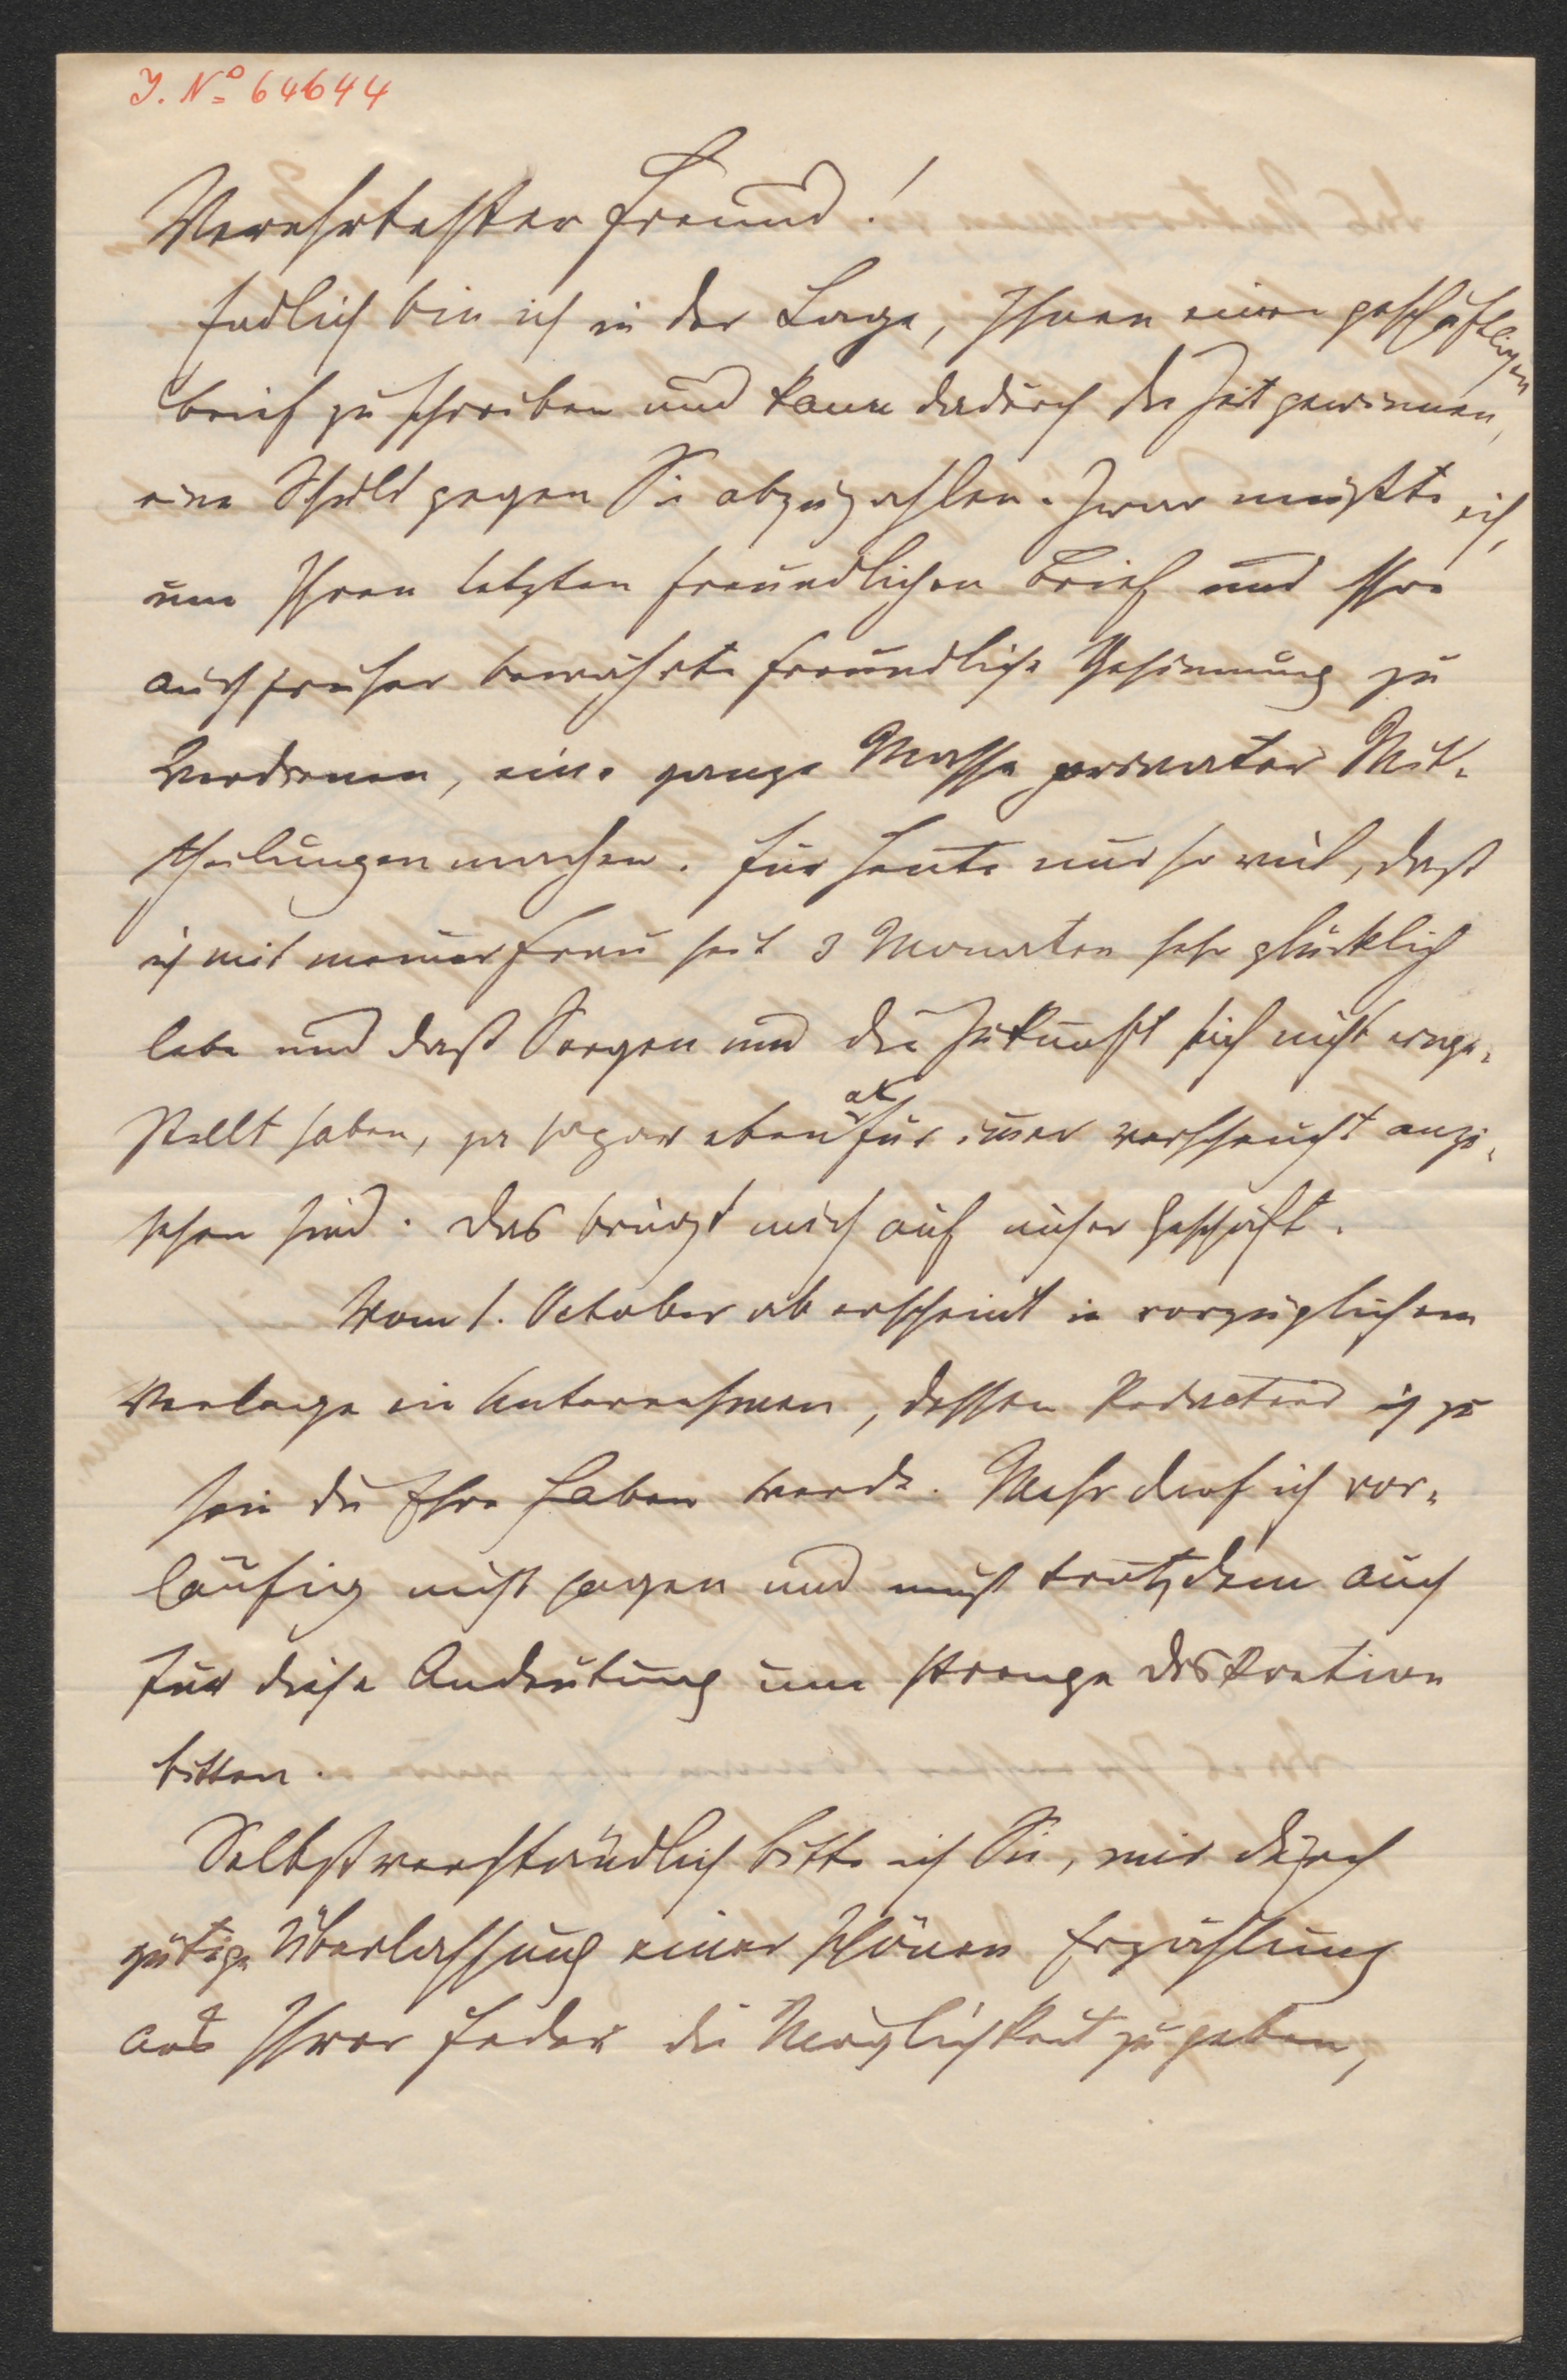 J. No 64644
Verehrtester Freund!
Endlich bin ich in der Lage, Ihnen einen geschäftlichen
Brief zu schreiben und kann dadurch die Zeit gewinnen,
eine Schuld gegen Sie abzuzahlen. Zwar müßte ich,
um Ihren letzten freundlichen Brief und Ihre
auch früher bewährte freundliche Gesinnung zu
verdienen, eine ganze Masse privater Mit-
theilungen machen. Für heute nur so viel, daß
ich mit meiner Frau seit 3 Monaten sehr glücklich
lebe und daß Sorgen um die Zukunft sich nicht einge-
stellt haben, ja sogar eben als für immer verscheucht anzu-
sehen sind. Das bringt mich auf unser Geschäft.
Vom 1. October ab erscheint in vorzüglichem
Verlage ein Unternehmen, dessen Redacteur ich zu
sein die Ehre haben werde. Mehr darf ich vor-
läufig nicht sagen und muß trotzdem auch
für diese Andeutung um strenge Diskretion
bitten.
Selbstverständlich bitte ich Sie, mir durch
gütige Überlassung einer schönen Erzählung
aus Ihrer Feder die Möglichkeit zu geben,